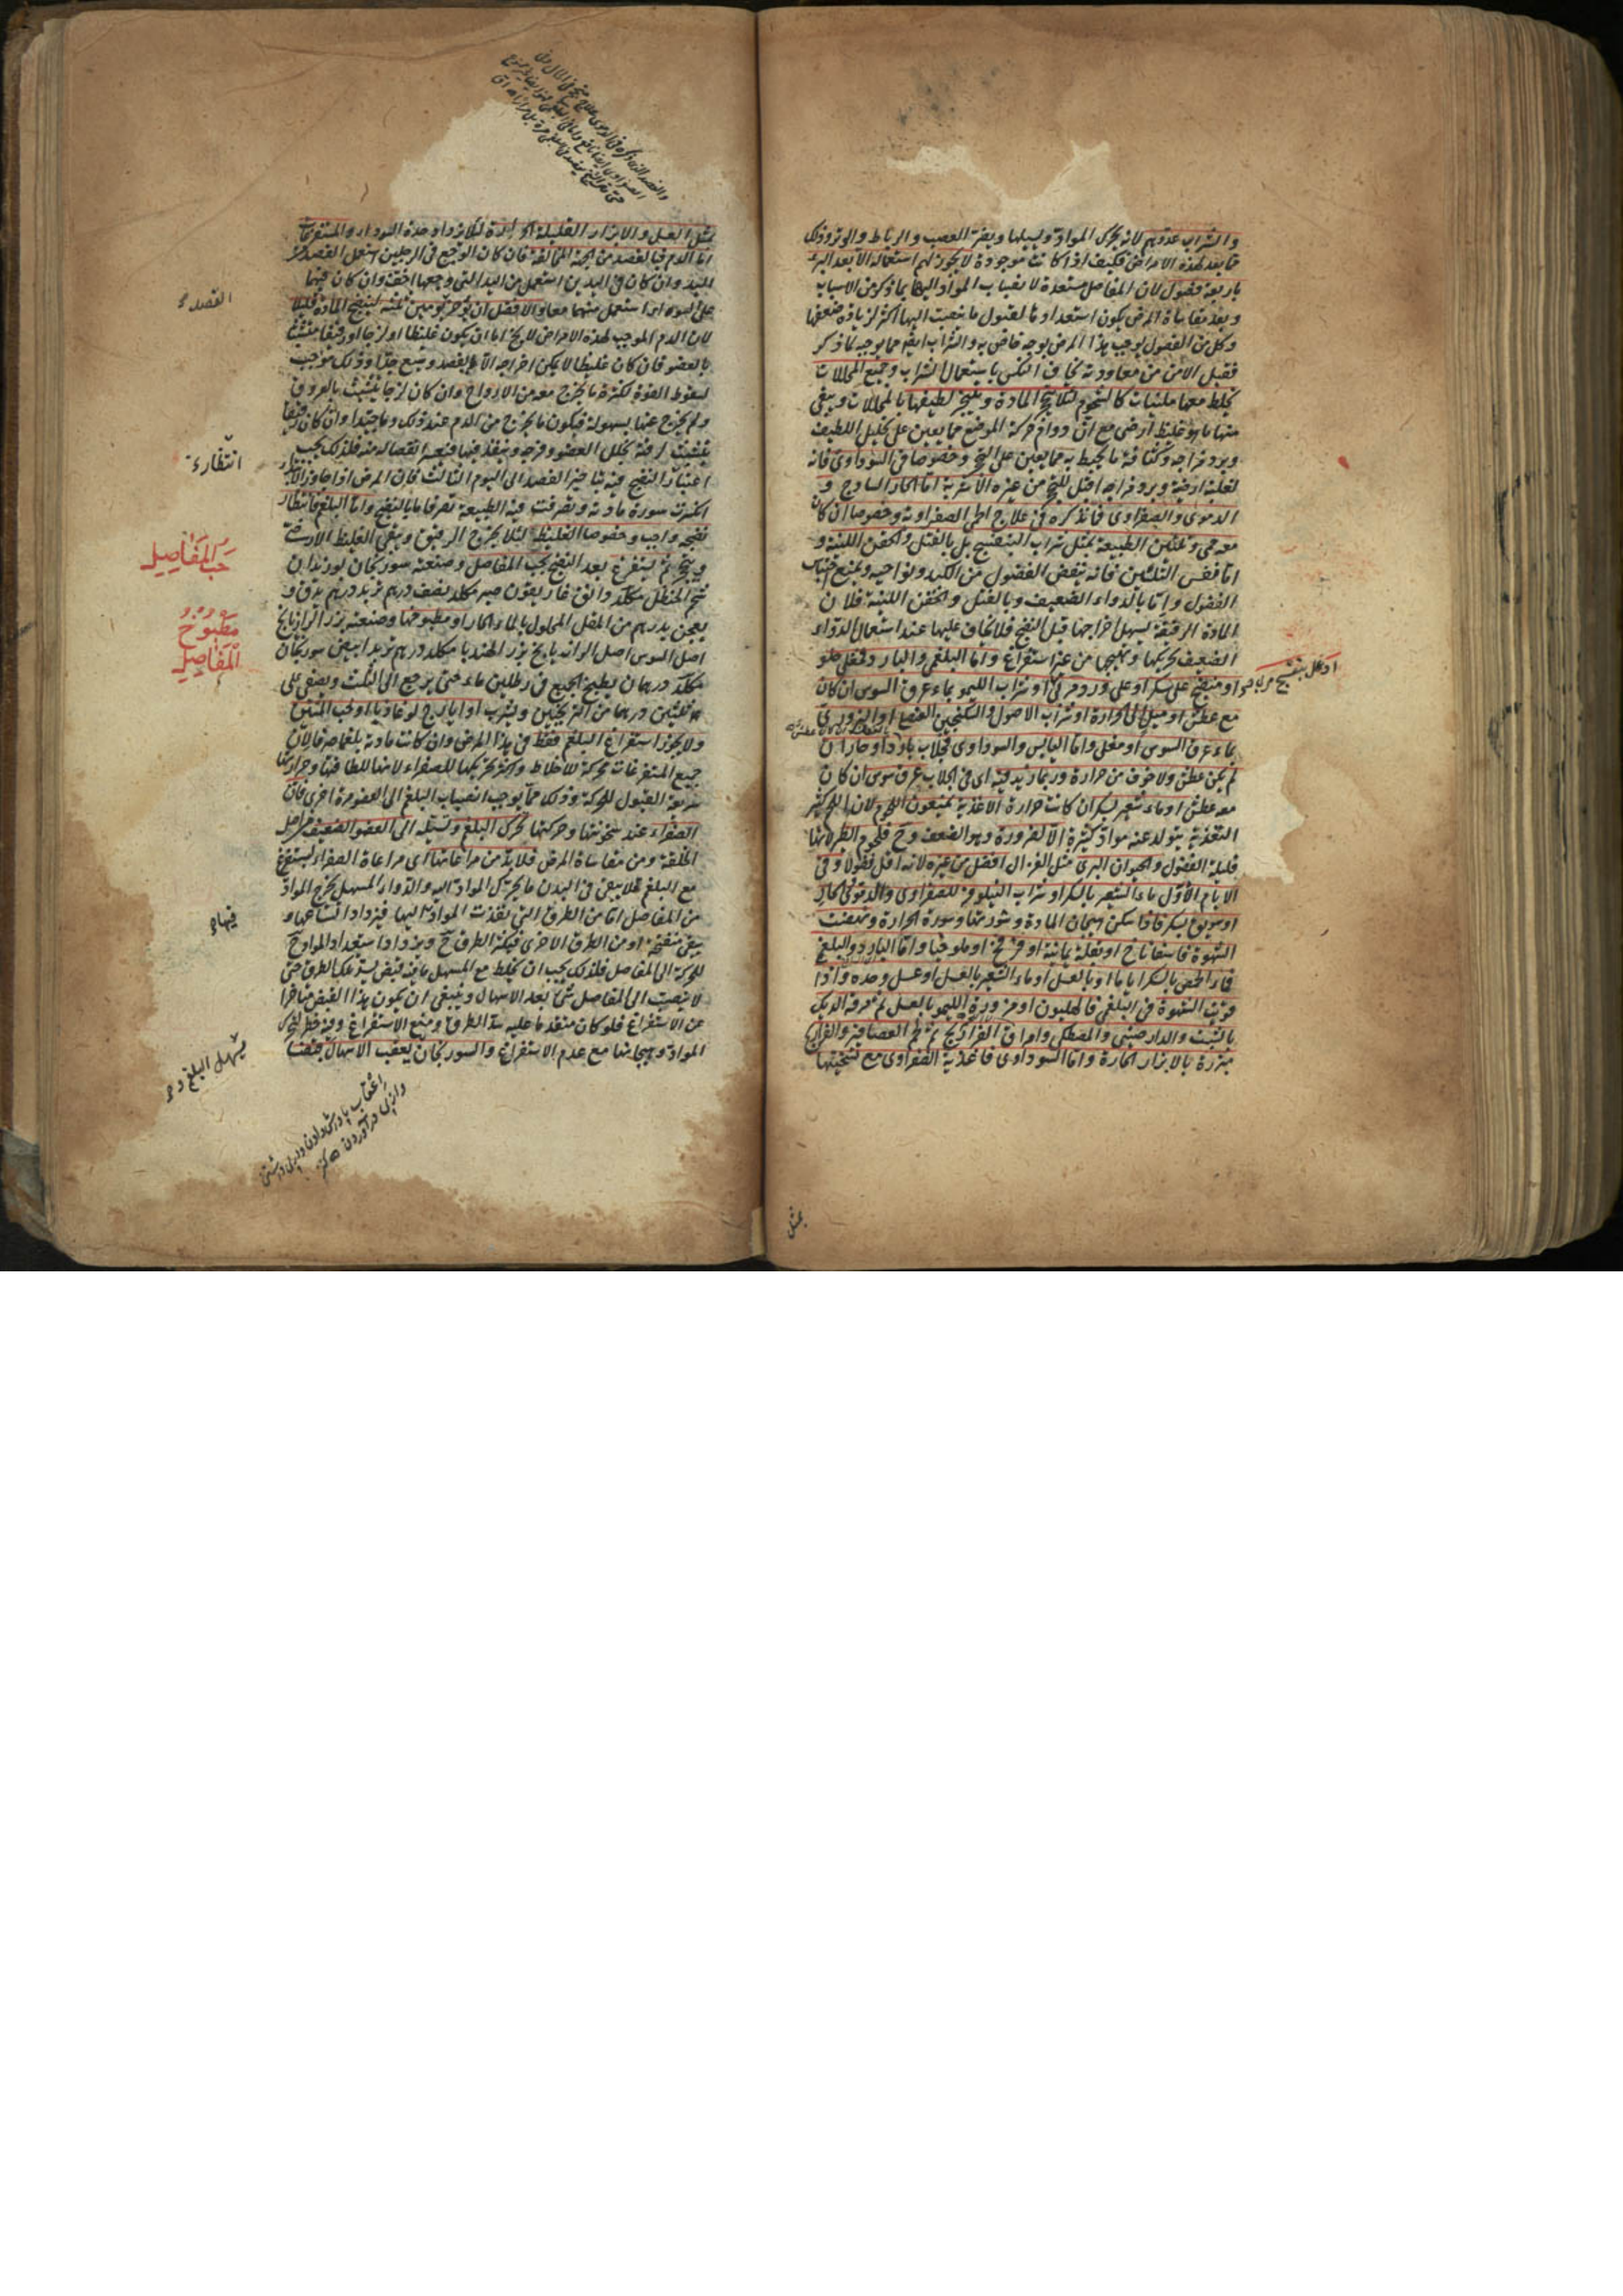 والشراب عدو لهم لانه يحرك المواد ويسيلها ويضر العصب والرباط والوتر وذلك
مما يعد لهذه الامراض فكيف اذا كانت موجودة لا يجوز لهم استعماله الا بعد البرء
باربعة فصول لان المفاصل مستعدة لانصباب المواد اليها بما ذكر من الاسباب
وبعد مقاساة المرض يكون استعدادها لقبول ما ينصب اليها اكثر لزيادة ضعفها
وكل من الفصول يوجب هذا المرض بوجه خاص به والشراب ايضا مما يوجبه كما ذكر
فقبل الامن من معاودته يخاف النكس باستعمال الشراب وجميع المحللات
يخلط معها ملينات كالشحوم لئلا يتحجر المادة بتحليل لطيفها بالمحللات ويبقى
منها ما هو غليظ ارضى مع ان دوام حركة الموضع مما يعين على تحليل اللطيف
وبرد مزاجه وكثافة ما يحيط به مما يعين على التحجر وخصوصا فى السوداوى فانه
لغلبة ارضيته وبرد مزاجه اقبل للتحجر من غيره الاشربة اما الحار الساذج و
الدموى والصفراوى فما نذكره فى علاج الحمى الصفراوية وخصوصا ان كان
معه حمى وتليين الطبيعة بمثل شراب البنفسج بل بالفتل والحقن اللينة و
اما نفس التليين فانه ينقص الفضول من الكبد ونواحيه ويمنع احتباس
الفضول واما بالدواء الضعيف وبالفتل والحقن اللينة فلان
المادة الرقيقة يسهل اخراجها قبل النضج فلا يخاف عليها عند استعمال الدواء
الضعيف تحريكها وتهيجها من غير استفراغ واما البلغمى والبارد فمغلى حلو
او منضج على سكر او على ورد مربى او شراب الليمو بماء عرق السوس ان كان
مع عطش او ميل الى الحرارة او شراب الاصول والسكنجبين العنصلى او البزورى
بماء عرق السوس او مغلى واما اليابس والسوداوى فجلاب بارد او حار ان
لم يكن عطش ولا خوف من حرارة وربما زيد فيه اى فى الجلاب عرق سوس ان كان
معه عطش او ماء شعير بسكر ان كانت حرارة الاغذية يمنعون اللحم لان اللحم كثير
التغذية يتولد عنه مواد كثيرة الا لضرورة وهو الضعف وح فلحوم الطير لانها
قليلة الفضول والحيوان البرى مثل الغزال افضل من غيره لانه اقل فضولا وفى
الايام الاول ماء الشعير بالسكر او شراب النيلوفر للصفراوى والدموى
او سويق بسكر فاذا سكن هيجان المادة وثورتها وسورة الحرارة ونهضت
الشهوة فاسفاناخ او بقلة يمانية او قرع او ملوخيا واما البارد والبلغمى
فماء الحمص بالسكر اياما او بالعسل او ماء الشعير بالعسل او عسل وحده واذا
قويت الشهوة فى البلغمى فالهليون او مزورة الليمو بالعسل ثم مرقة الديك
بالشبث والدار صينى والمصطكى وامراق الفراريج ثم لحم العصافير والفراريج
مبزرة بالابزار الحارة واما السوداوى فاغذية الصفراوى مع تسخينها
او على بنفسج مربا
بمثل
بمثل العسل والابزار القليلة الحرارة لئلا يزداد حدة السوداء والمستفرغات
اما الدم فبالفصد من الجهة المخالفة فان كان الوجع فى الرجلين استعمل الفصد من
اليد وان كان فى اليدين استعمل من اليد التى وجعها اخف وان كان فيهما
على السواء استعمل منهما معا والافضل ان يؤخر يومين ثلثة لينضج المادة قليلا
لان الدم الموجب لهذه الامراض لا يخ اما ان يكون غليظا او لزجا او رقيقا متشبثا
بالعضو فان كان غليظا لا يمكن اخراجه الا بفصد وسيع جدا وذلك موجب
لسقوط القوة لكثرة ما يخرج معه من الارواح وان كان لزجا يتشبث بالعروق
ولم يخرج عنها بسهولة فيكون ما يخرج من الدم عند ذلك وان كان رقيقا
يتشبث لرقته بخلل العضو وفرجه وينفذ فيها فيتعسر انفصاله منه فلذلك يجب
اعتبار النضج فيه بتاخير الفصد الى اليوم الثالث فان المرض اذا جاوز الثالث
انكسرت سورة مادته وتصرفت فيه الطبيعة تصرفا ما بالنضج واما البلغم فانتظار
نضجه واجب وخصوصا الغليظ لئلا يخرج الرقيق ويبقى الغليظ الارضى
ويتحجر ثم يستفرغ بعد النضج بحب المفاصل وصنعته سورنجان بوزيدان
شحم الحنظل مكلد دانق غاريقون صبر مكلد نصف درهم تربد درهم يدق و
يعجن بدرهم من المقل المحلول بالماء الحار او مطبوخها وصنعته بزر الرازيانج
اصل السوس اصل الرازيانج بزر الهندبا مكلد درهم تربد ابيض سورنجان
مكلد درهمان يطبخ الجميع فى رطلين ماء حتى يرجع الى الثلث ويصفى على
ثلثين درهما من الترنجبين ويشرب او ايارج لوغاذيا او لحب المنتن
ولا يجوز استفراغ البلغم فقط فى هذا المرض وان كانت مادته بلغما صرفا لان
جميع المستفرغات محركة للاخلاط واكثر تحريكها للصفراء لانها للطافتها وحرارتها
سريعة القبول للحركة وذلك مما يوجب انصباب البلغم الى العضو مرة اخرى فان
الصفراء عند سخونتها وحركتها تحرك البلغم وتسيله الى العضو الضعيف من اصل
الخلقة ومن مقاساة المرض فلا بد من مراعاتها اى مراعاة الصفراء ليستفرغ
مع البلغم فلا يبقى فى البدن ما يحرك المواد اليه والدواء المسهل يخرج المواد
من المفاصل اما من الطرق التى نفذت المواد اليها فيزداد اتساعها و
يبقى منفتحة او من الطرق الاخرى فيكثر الطرق ح ويزداد استعداد المواد ح
للحركة الى المفاصل فلذلك يجب ان يخلط مع المسهل ما فيه قبض يسد تلك الطرق حتى
لا ينصب الى المفاصل شئ بعد الاسهال وينبغى ان يكون هذا القبض متاخرا
عن الاستفراغ فلو كان متقدما عليه سد الطرق ومنع الاستفراغ وفيه خطر لتحرك
المواد وهيجانها مع عدم الاستفراغ والسورنجان يعقب الاسهال قبضا
الفصد
انتظاره
حب المفاصل
مطبوخ
المفاصل
فيها
يسهل البلغم و